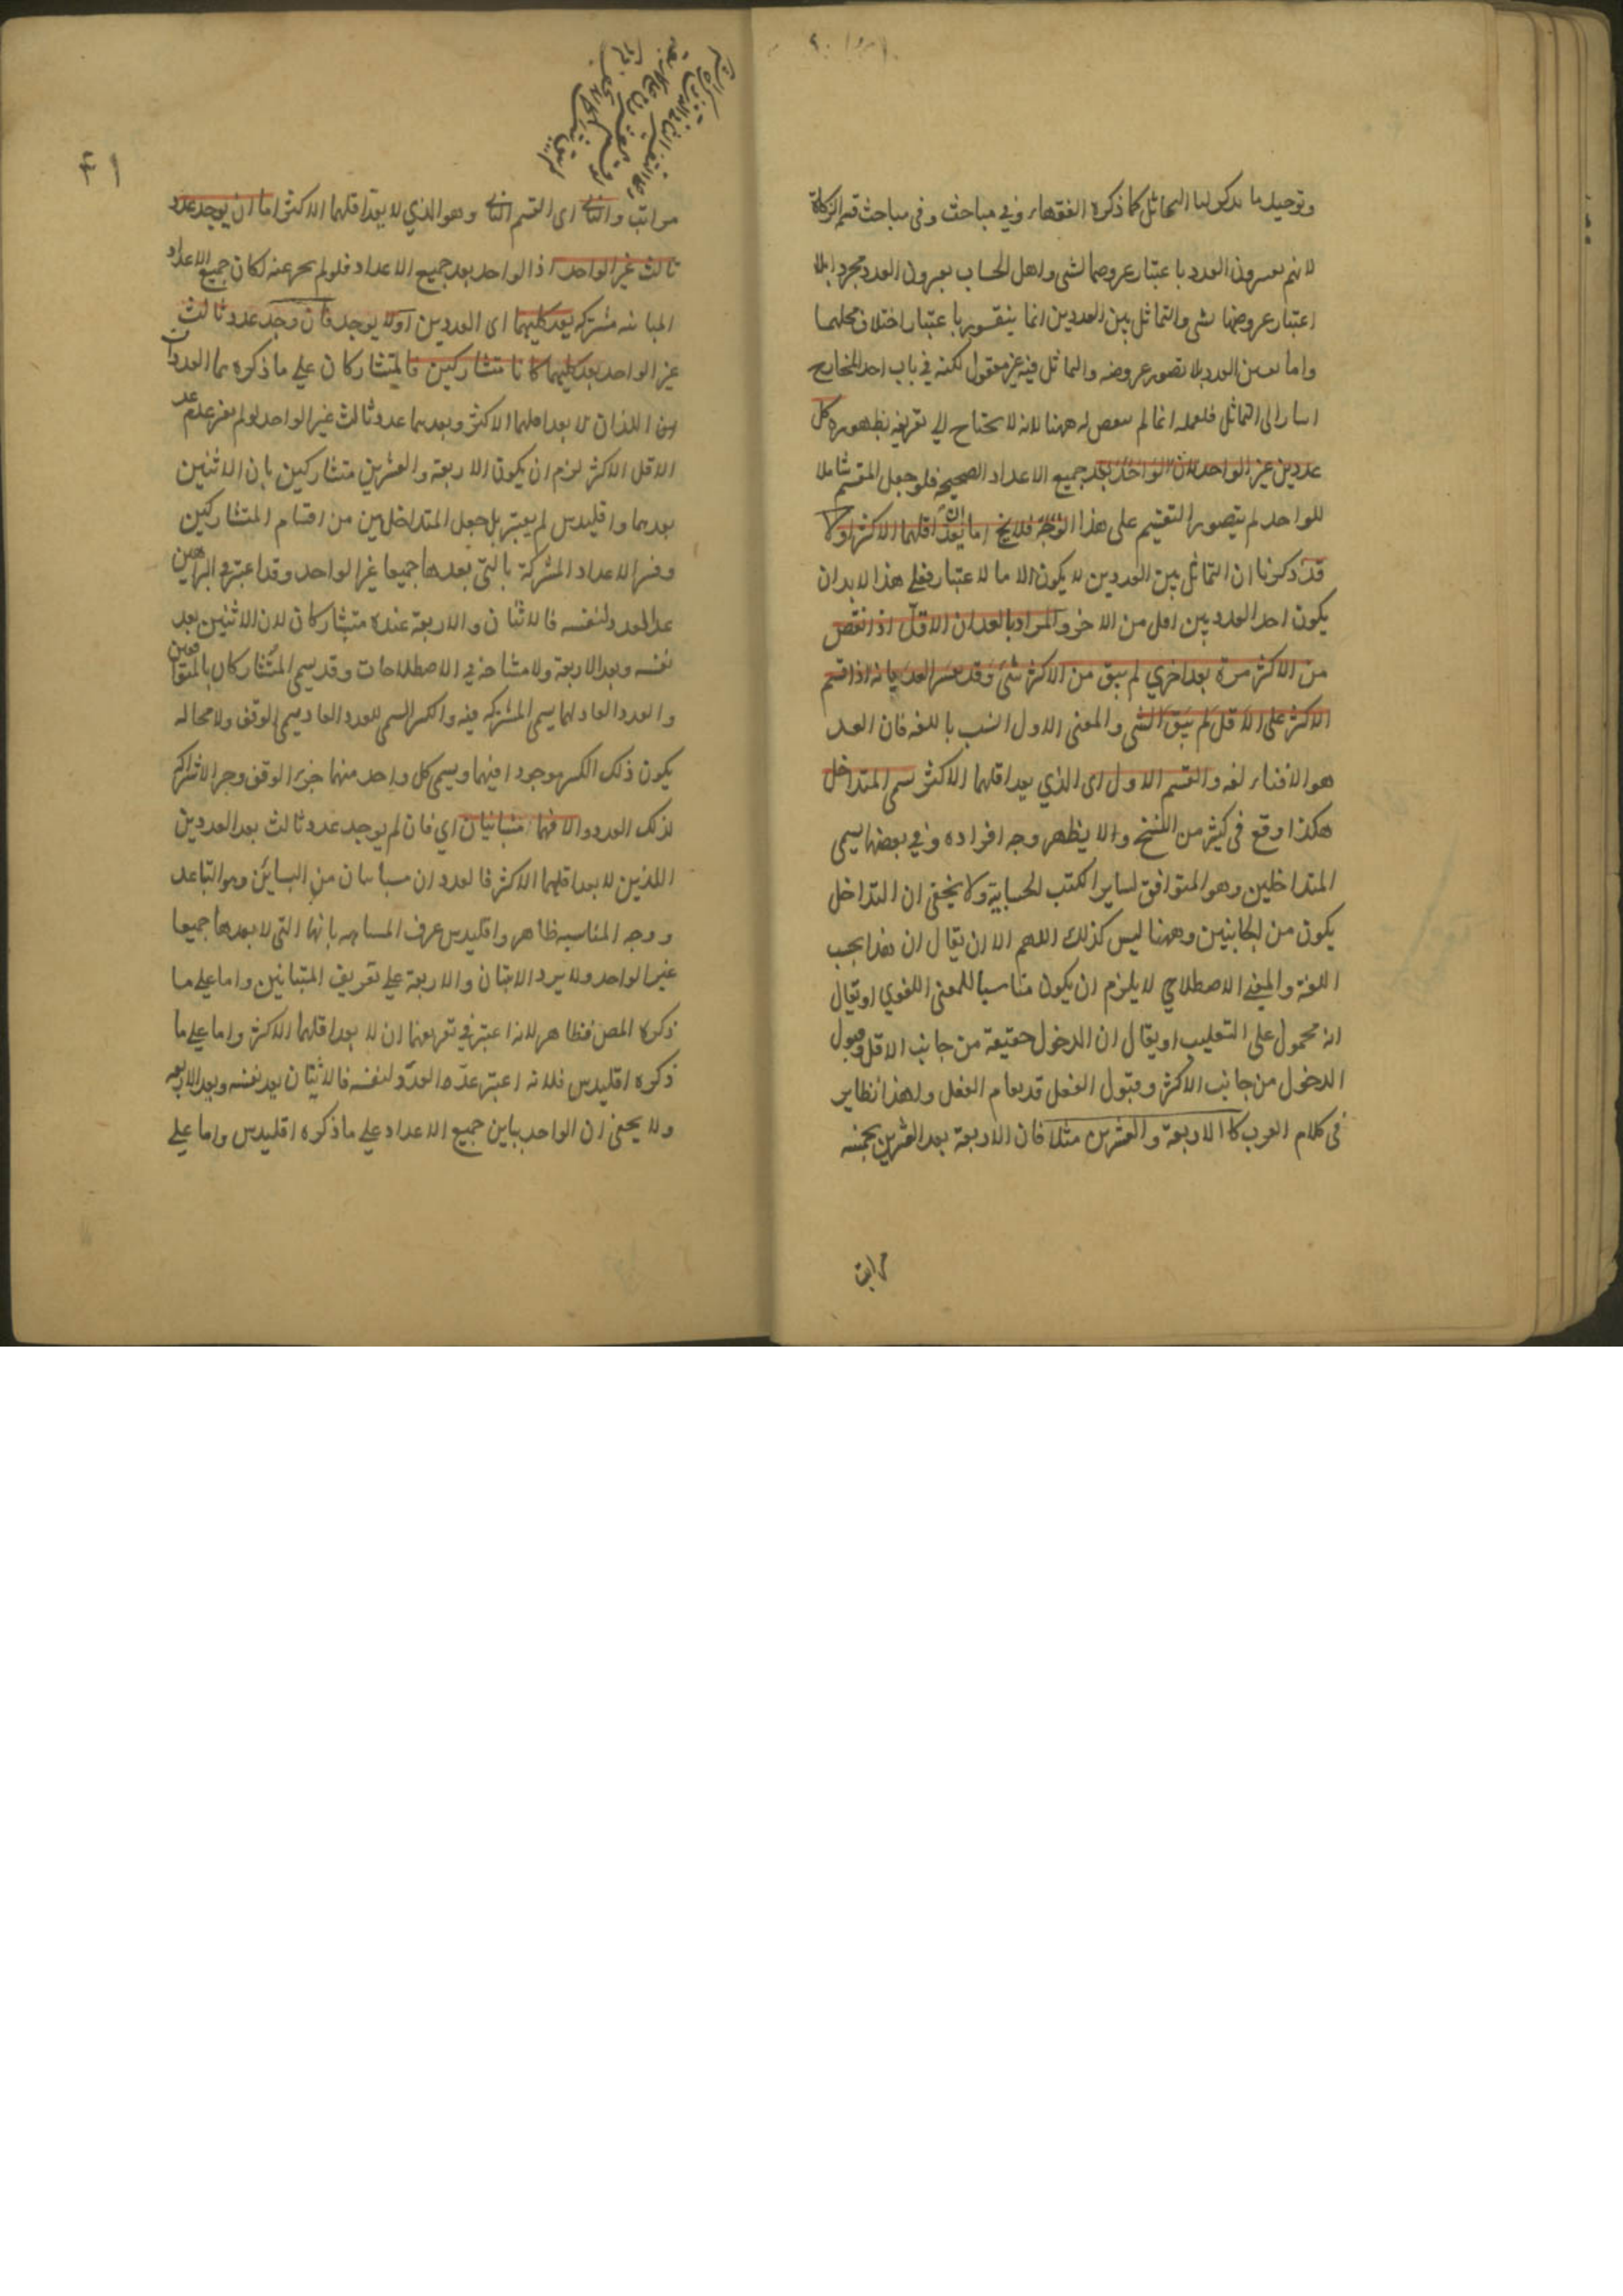 وتوجيه ما الىماثل كما ذكره الفقهاء في مباحث وفى مباحث قسم الزكاة
لانهم العدد باعتبار عروضها لشى واهل الحساب العدد مجرد ابلا
اعتبار عروضها لشى والتماثل بين العددين انما يتصور باعتبار اختلاف محلهما
واما العدد بلا تصور عروضه والتماثل فيه غير معقول لكنه في باب اخذ المخارج
اسار الى التماثل فلعله انما لم ههنا لانه لا يحتاج الي تعريفه لظهوره كل
عددين غير الواحد لان الواحد يعد جميع الاعداد الصحيحة فلو جعل المقسم شاملا
للواحد لم يتصور التقسيم على هذا الوجه فلا يخ اما ان يعد اقلهما الاكثر اولا
قد ذكرنا ان التماثل بين العددين لا يكون الا بالاعتبار فعلي هذا لا بد ان
يكون احد العددين اقل من الاخر والمراد بالعد ان الاقل اذا نقص
من الاكثر مرة بعد اخري لم يبق من الاكثر شئ وقد العد بانه اذا قسم
الاكثر على الاقل لم يبق الشى والمعنى الاول انسب باللغه فان العد
هو الافناء لغه والقسم الاول اى الذي يعد اقلهما الاكثر يسمى المتداخل
هكذا وقع فى كثير من النسخ والا يظهر وجه افراده وفي بعضها يسمى
المتداخلين وهو المتوافق لساير الكتب الحسابية ولا يخفى ان التداخل
يكون من الجانبين وههنا ليس كذلك اللهم الا ان يقال ان هذا بحسب
اللغة والمعنى الاصطلاحي لا يلزم ان يكون مناسبا للمعنى اللغوي او يقال
انه محمول على التغليب او يقال ان الدخول حقيقة من جانب الاقل وقبول
الدخول من جانب الاكثر وقبول الفعل قد يقام الفعل ولهذا نظاير
فى كلام العرب كالاربعة والعشرين مثلا فان الاربعة يعد العشرين بخمسه
مراتب
٤١
مراتب والثانى اى القسم الثانى وهو الذي لا يعد اقلهما الاكثر اما ان يوجد عدد
ثالث غير الواحد اذ الواحد يعد جميع الاعداد فلو لم يحرعنه لكان جميع الاعداد
المباينه مشتركه يعد كليهما اى العددين اولا يوجد فان وجد عدد ثالث
غير الواحد يعد كليهما كانا متشاركين فالمتشاركان علي ما ذكره هما العددان
اللذان لا يعد اقلهما الاكثر ويعدهما عدد ثالث غير الواحد لو لم عدم عد
الاقل الاكثر لزم ان يكون الاربعة والعشرين متشاركين بان الاثنين
يعدهما واقليدس لم يعتبر بل جعل المتداخلين من اقسام المتشاركين
وفسر الاعداد المشتركة بالتى يعدها جميعا غير الواحد وقد اعتبر في البراهين
عد العدد لنفسه فالاثنان والاربعة عنده متشاركان لان الاثنين يعد
نفسه ويعد الاربعة ولا مشاحة في الاصطلاحات وقد يسمى المتشاركان بالمتوافقين
والعدد العاد لهما يسمى المشترك فيه والكسر السمى للعدد العاد يسمى الوفق ولا محاله
يكون ذلك الكسر موجودا فيهما ويسمى كل واحد منهما جزء الوفق وجزء الاشتراك
لذلك العدد والا فهما متباينان اي فان لم يوجد عدد ثالث يعد العددين
اللذين لا يعد اقلهما الاكثر فالعددان متباينان من التباين وهو التباعد
ووجه المناسبه ظاهر واقليدس عرف المتباينه بانها التى لا يعدها جميعا
غير الواحد ولا يرد الاثنان والاربعة على تعريف المتباينين واما علي ما
ذكره المص فظاهر لانه اعتبر في تعريفهما ان لا يعد اقلهما الاكثر واما علي ما
ذكره اقليدس فلانه اعتبر عد العدد لنفسه فالاثنان يعد نفسه ويعد الاربعه
ولا يخفى ان الواحد يباين جميع الاعداد علي ما ذكره اقليدس واما علي